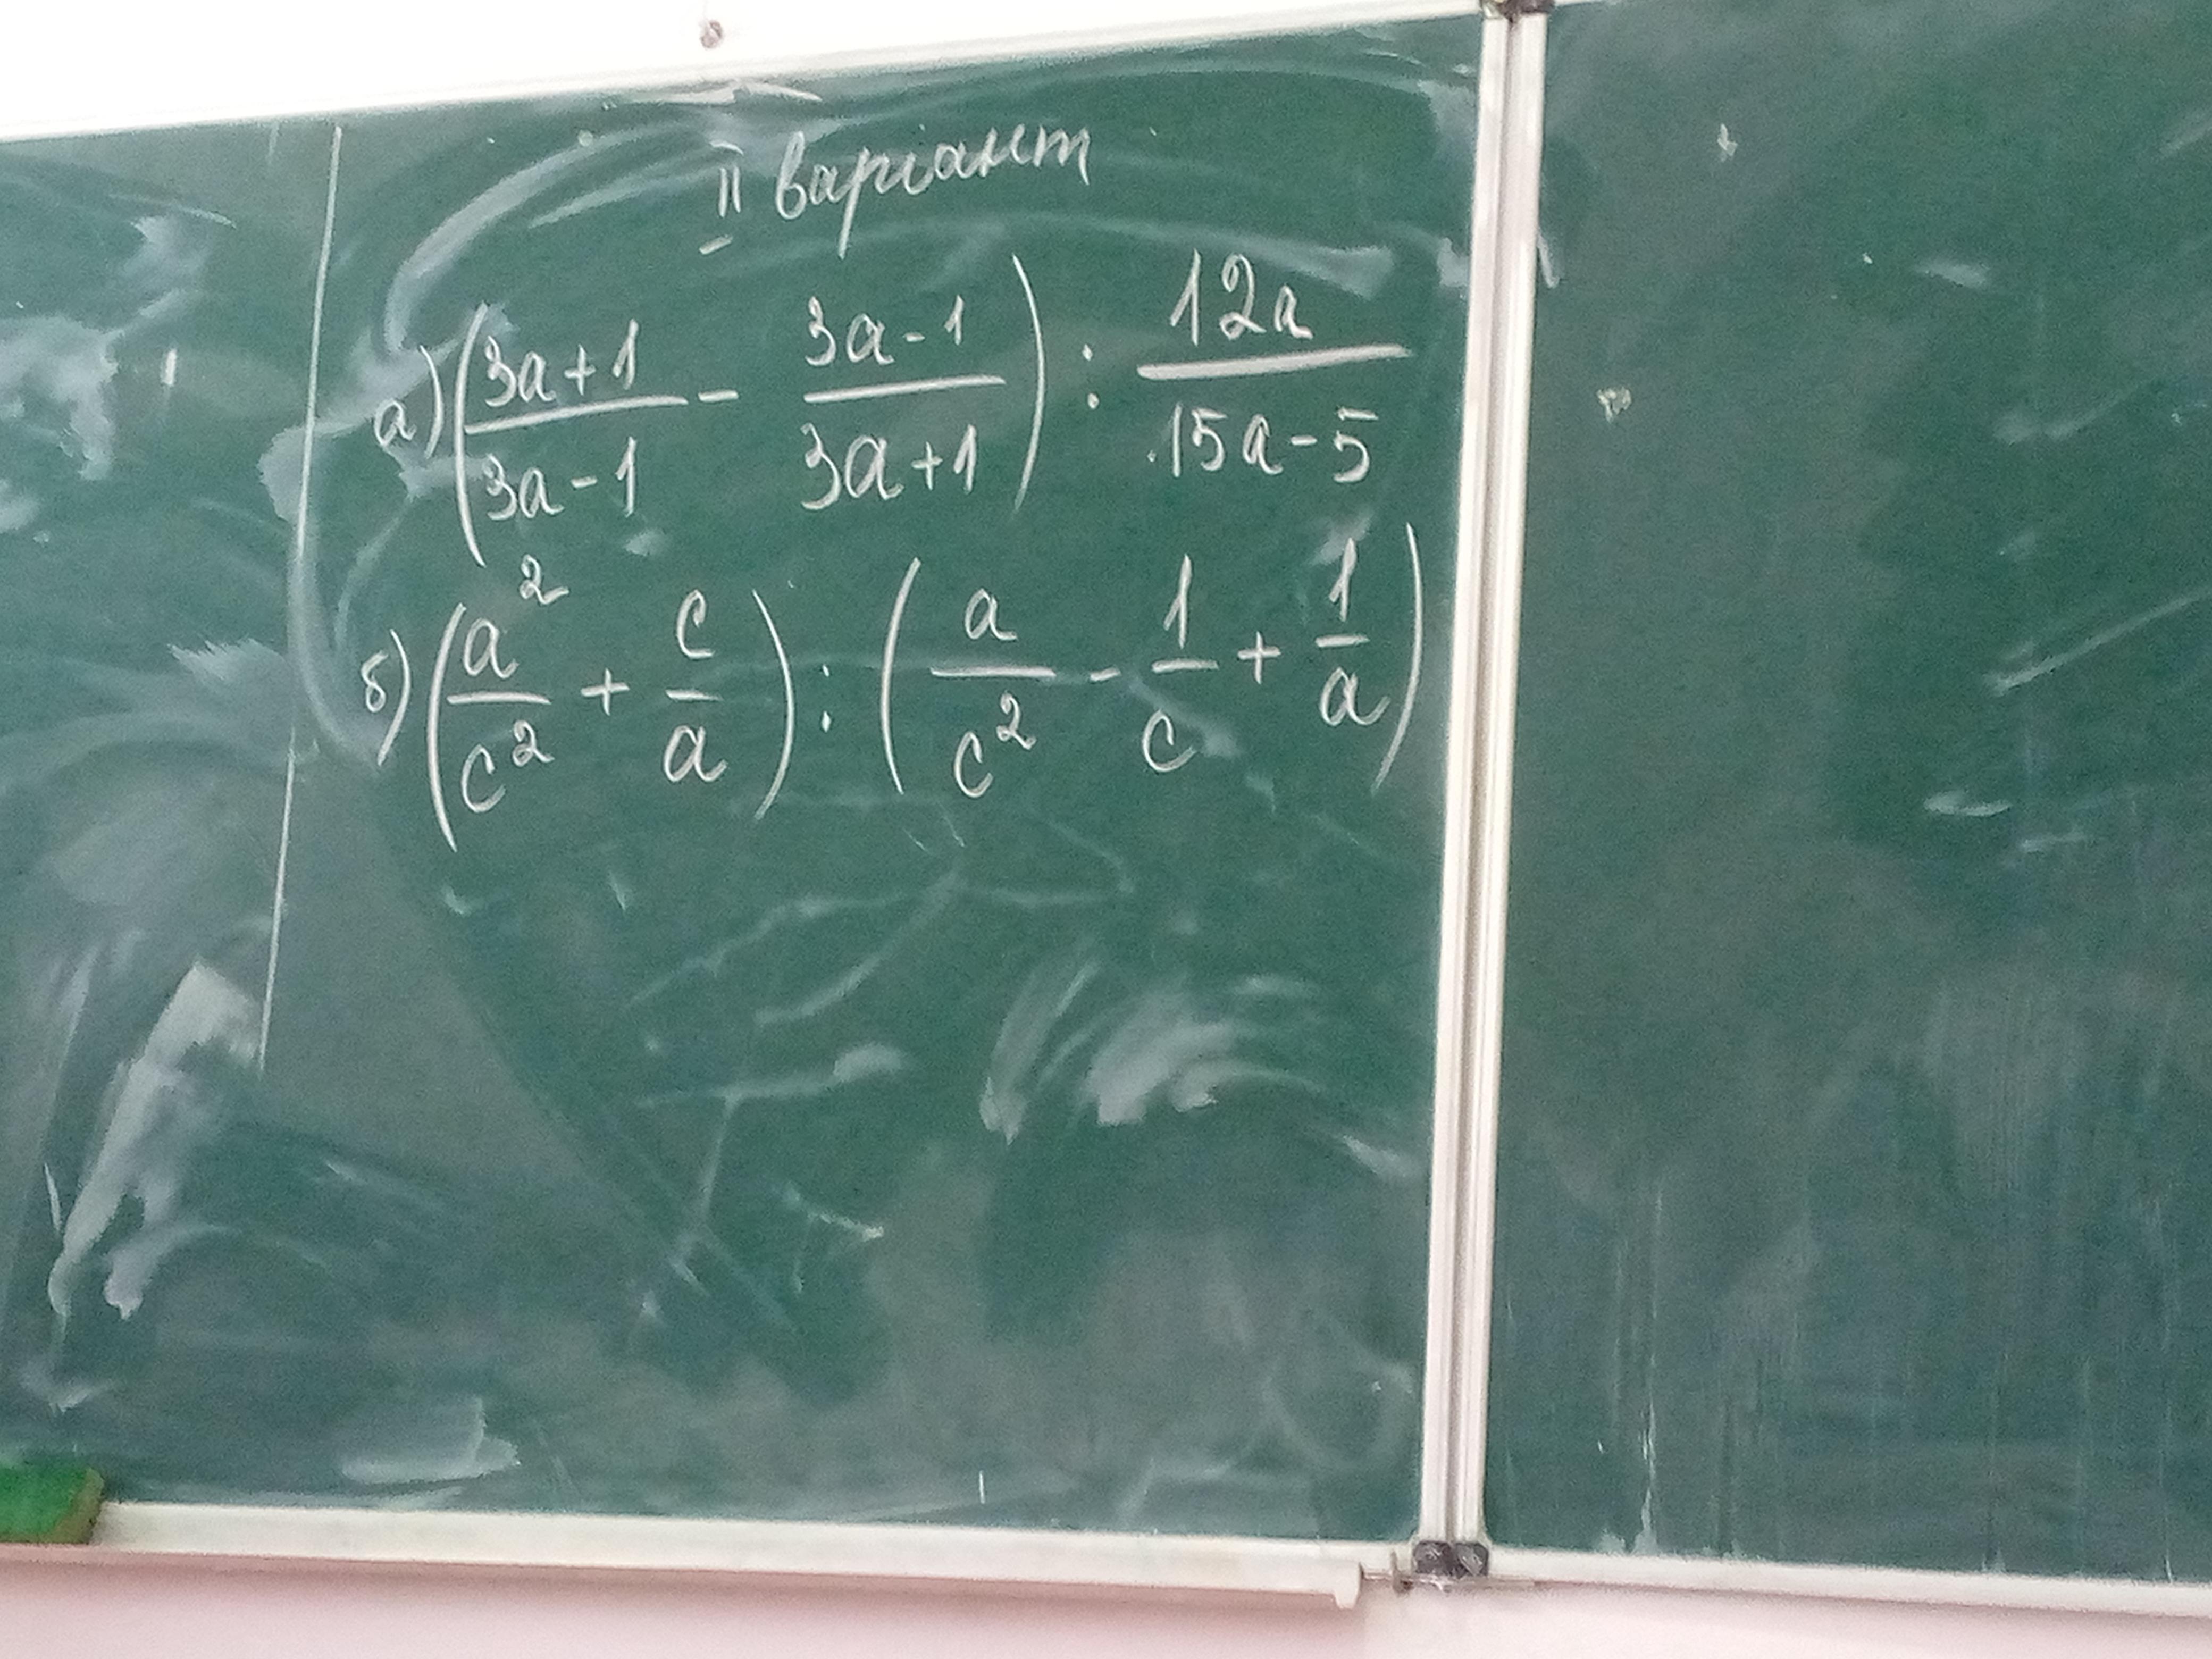 II варіант
а) (3a+1/3a-1 - 3a-1/3a+1) : 12a/15a-5
б) (a²/c² + c/a) : (a/c² - 1/c + 1/a)